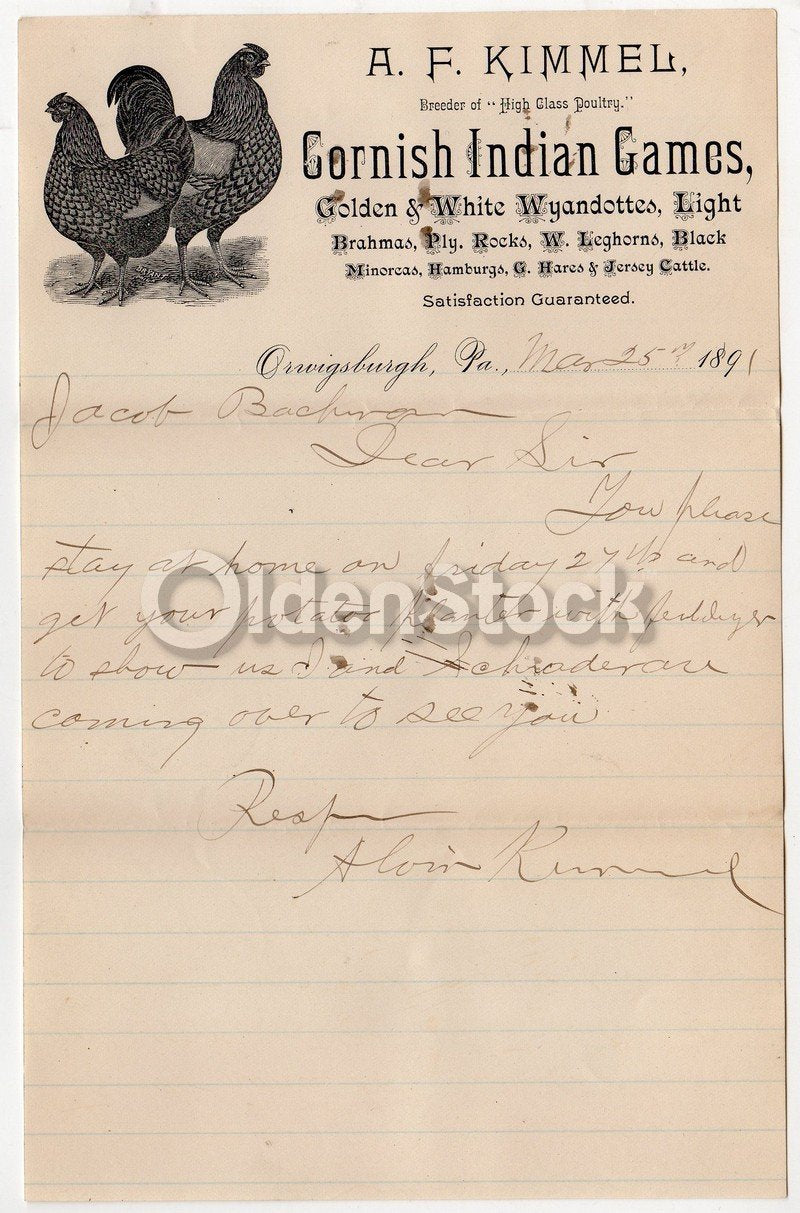 A. F. KIMMEL,
Breeder of "High Class Poultry."
Cornish Indian Games,
Golden & White Wyandottes, Light
Brahmas, Ply. Rocks, W. Leghorns, Black
Minorcas, Hamburgs, G. Hares & Jersey Cattle.
Satisfaction Guaranteed.
Orwigsburgh, Pa., Mar 25th 1891
Jacob Bachman
Dear Sir
You please
stay at home on friday 27th and
get your potatoe planter with
to show us I and Schrader are
coming over to see you
Resp
Alvin Kimmel
OldenStock